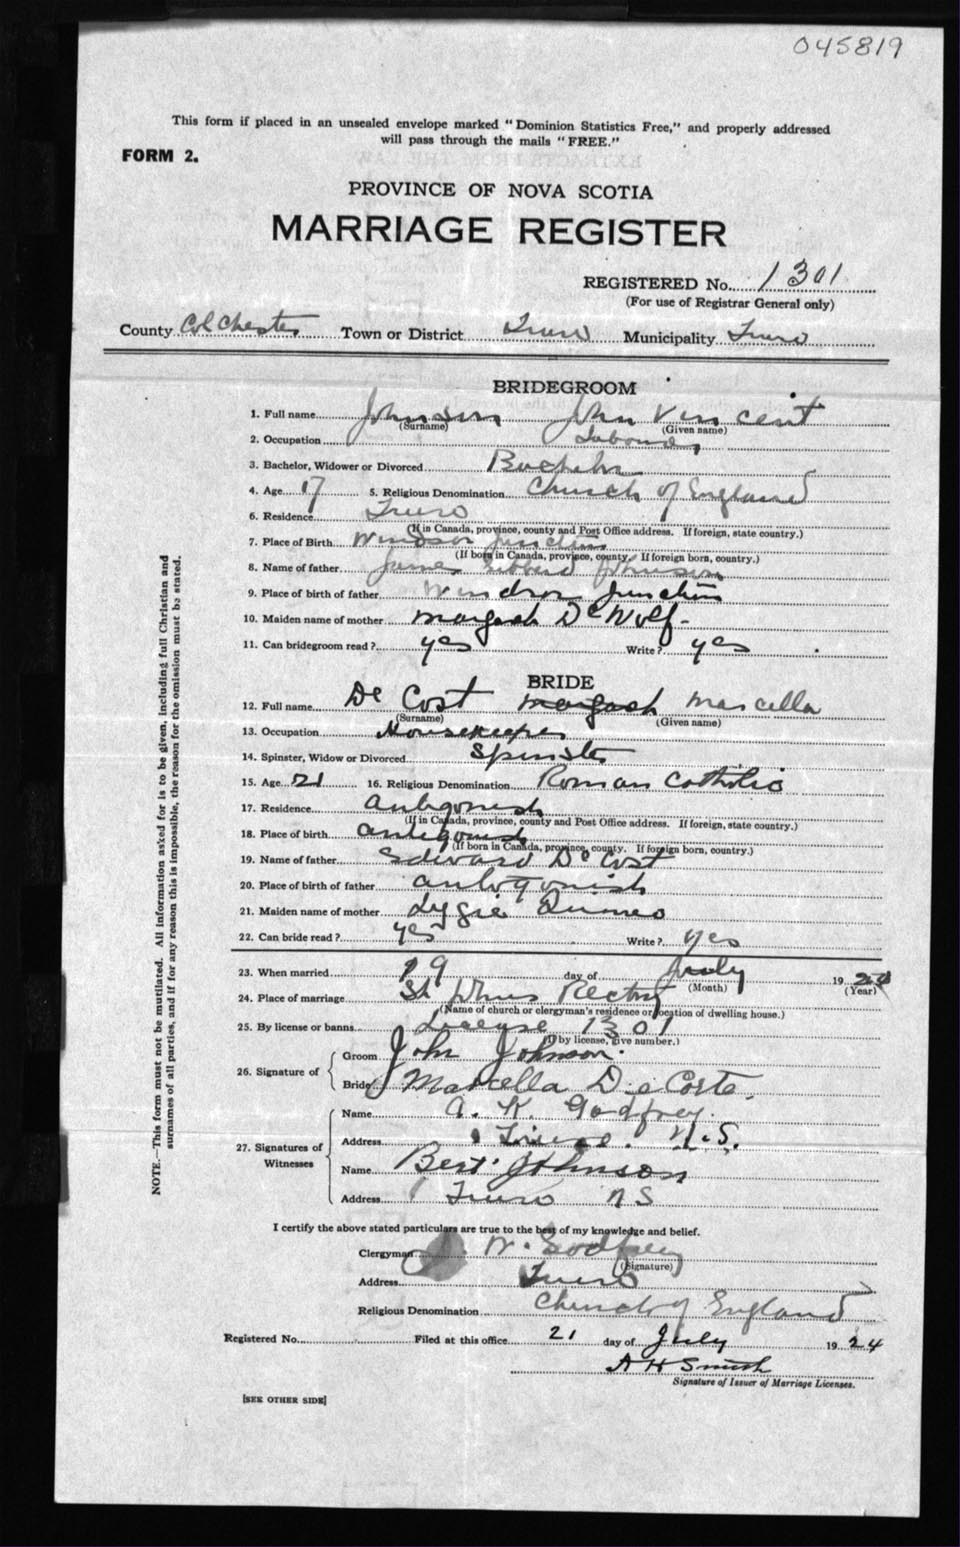 045819
This form if placed in an unsealed envelope marked "Dominion Statistics Free," and properly addressed
will pass through the mails "FREE."
FORM 2.
PROVINCE OF NOVA SCOTIA
MARRIAGE REGISTER
REGISTERED No. 1301
(For use of Registrar General only)
County Colchester Town or District Truro Municipality Truro
BRIDEGROOM
1. Full name Johnson John Vincent
(Surname) (Given name)
2. Occupation Labourer
3. Bachelor, Widower or Divorced Bachelor
4. Age 17 5. Religious Denomination Church of England
6. Residence Truro
(If in Canada, province, county and Post Office address. If foreign, state country.)
7. Place of Birth Windsor Junction
(If born in Canada, province, county. If foreign born, country.)
8. Name of father James Johnson
9. Place of birth of father Windsor Junction
10. Maiden name of mother Margaret DeWolf
11. Can bridegroom read? yes Write? yes
BRIDE
12. Full name De Cost Margaret Marcella
(Surname) (Given name)
13. Occupation Housekeeper
14. Spinster, Widow or Divorced Spinster
15. Age 21 16. Religious Denomination Roman Catholic
17. Residence Antigonish
(If in Canada, province, county and Post Office address. If foreign, state country.)
18. Place of birth Antigonish
(If born in Canada, province, county. If foreign born, country.)
19. Name of father Edward De Cost
20. Place of birth of father Antigonish
21. Maiden name of mother
22. Can bride read? yes Write? yes
23. When married 19 day of July 1924
(Month) (Year)
24. Place of marriage St Johns Rectory
(Name of church or clergyman's residence or location of dwelling house.)
25. By license or banns License 1301
(If by license, give number.)
26. Signature of
Groom John Johnson.
Bride Marcella DeCoste.
27. Signatures of Witnesses
Name A. K. Godfrey.
Address Truro. N.S.
Name Bert Johnson
Address Truro N S
I certify the above stated particulars are true to the best of my knowledge and belief.
Clergyman W. Godfrey
(Signature)
Address Truro
Religious Denomination Church of England
Registered No. Filed at this office 21 day of July 1924
A H Smith
Signature of Issuer of Marriage Licenses.
[SEE OTHER SIDE]
NOTE.—This form must not be mutilated. All information asked for is to be given, including full Christian and
surnames of all parties, and if for any reason this is impossible, the reason for the omission must be stated.